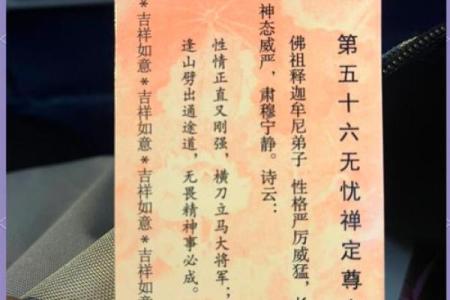 第五十六无忧禅定尊
佛祖释迦牟尼弟子 性格严厉威猛,
神态威严,肃穆宁静。诗云:
性情正直又刚强,横刀立马大将军;
逢山劈出通途道,无畏精神事必成。
*吉祥如意*吉祥如意*吉祥如意*吉祥如意*吉祥如意*